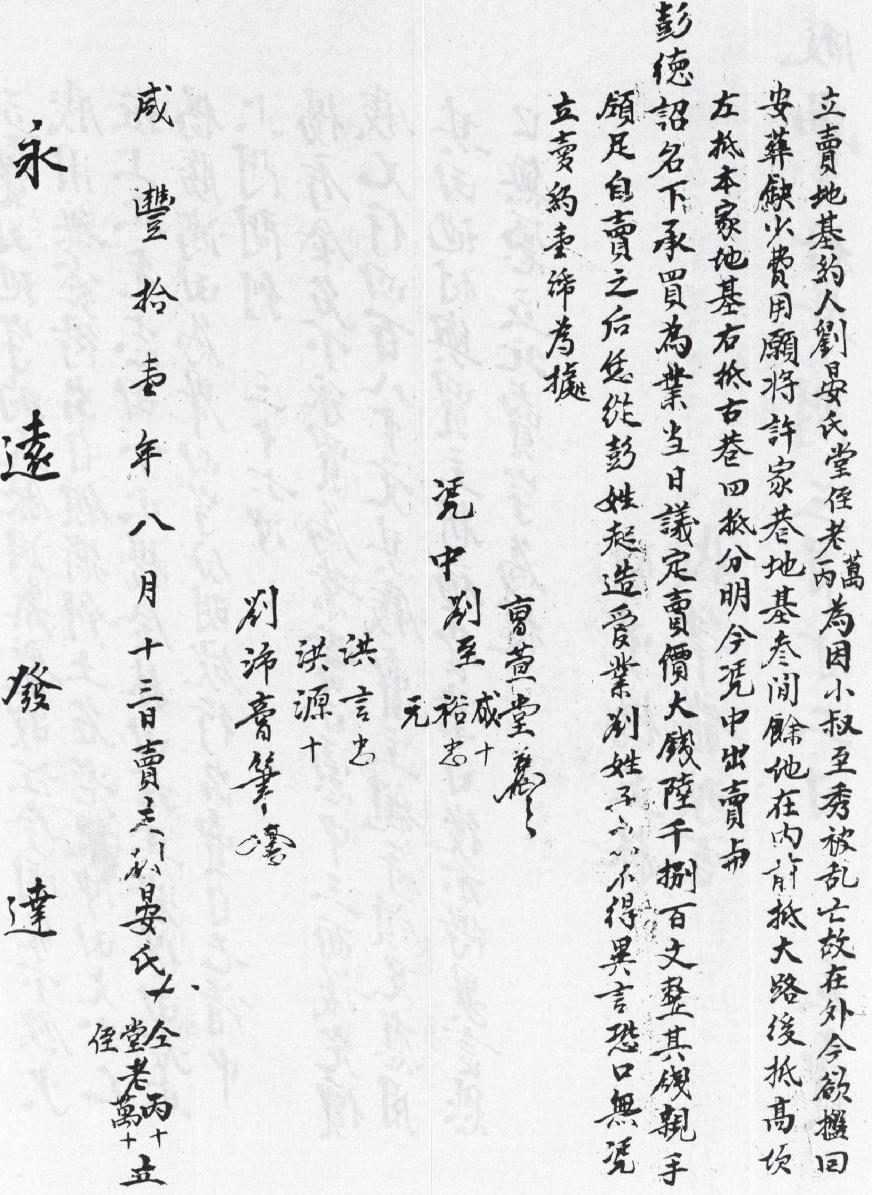 立賣地基約人劉晏氏堂侄老萬丙為因小叔至秀被乱亡故在外今欲搬回
安葬缺少費用願將許家巷地基叁间餘地在内前抵大路後抵高坎
左抵本家地基右抵古巷四抵分明今凭中出賣與
彭德詔名下承買為業当日議定賣價大錢陸千捌百文整其錢親手
領足自賣之后恁從彭姓起造受業劉姓不得異言恐口無凭
立賣約壹帋為據
曾萱堂
凭中 劉至咸十裕忠元
洪言忠
洪源十
劉沛膏筆
咸豐拾壹年八月十三日賣主劉晏氏十仝堂侄老丙十萬十立
永遠發達